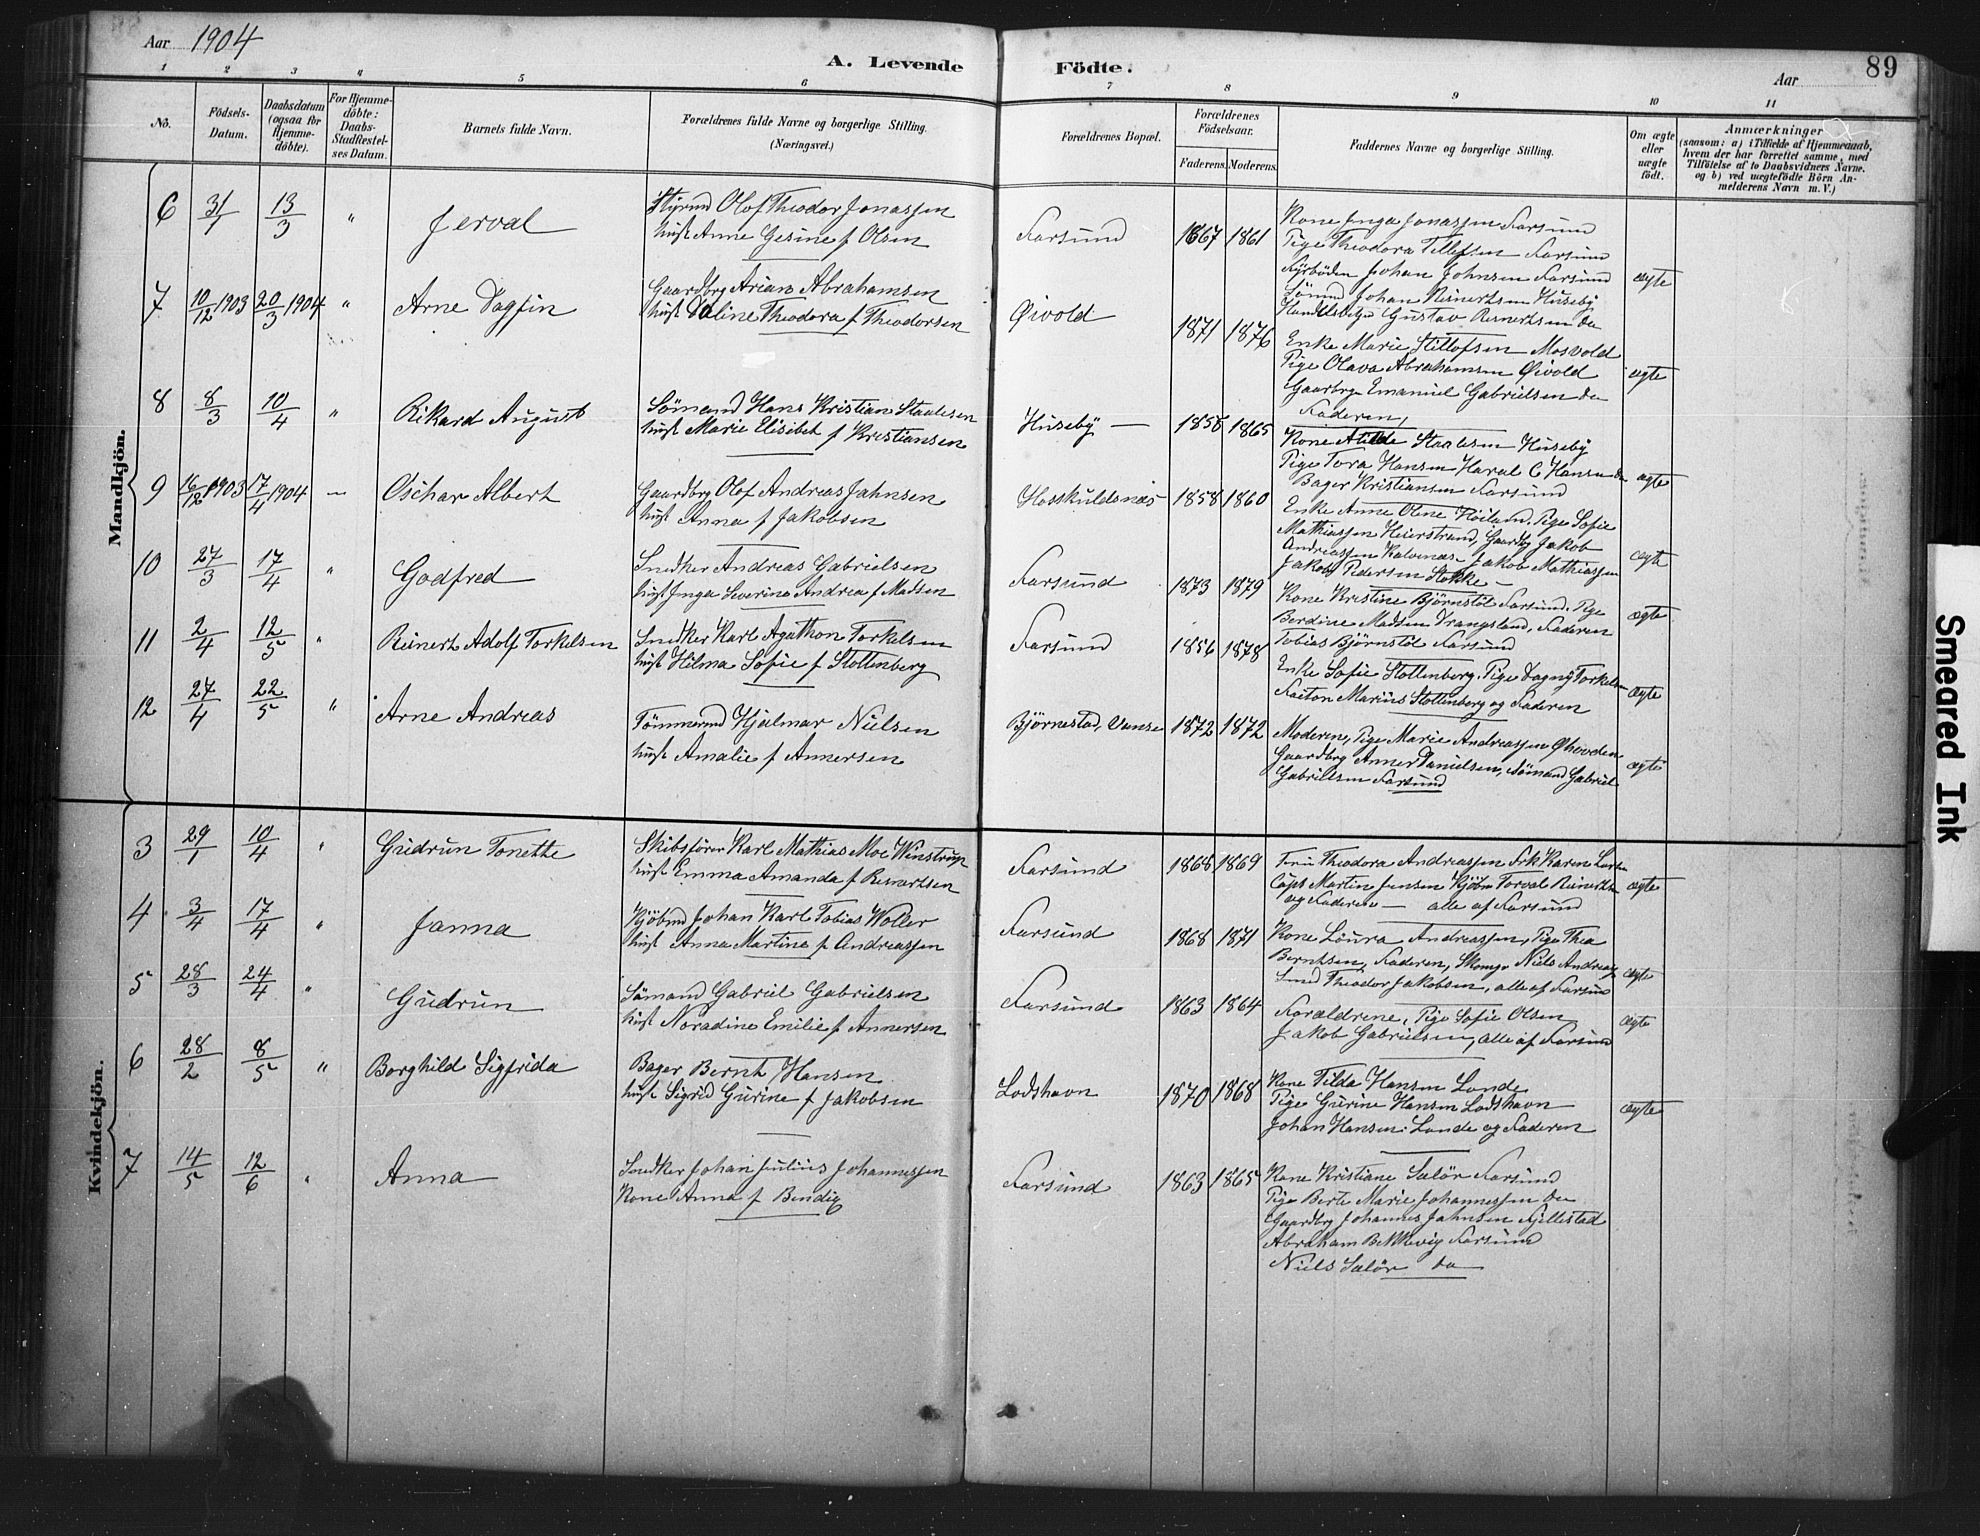 Aar 1904
A. Levende Födte.
Aar
89
1 2 3 4 5 6 7 8 9 10 11
No.
Födsels-Datum.
Daabsdatum (ogsaa for Hjemme-döbte).
For Hjemme-döbte: Daabs-Stadfæstel-ses Datum.
Barnets fulde Navn.
Forældrenes fulde Navne og borgerlige Stilling. (Næringsvei.)
Forældrenes Bopæl.
Forældrenes Födselsaar.
Faderens. Moderens.
Faddernes Navne og borgerlige Stilling.
Om ægte eller uægte födt.
Anmærkninger
(saasom: a) i Tilfælde af Hjemmedaab, hvem der har forrettet samme, med Tilföielse af to Daabsvidners Navne. og b) ved uægtefödte Börn An-melderens Navn m. V.)
Mandkjön.
6 31/1 13/3 " Jerval
Styrmd Olof Theodor Jonassen
hust Anne Gesine f Olsen
Farsund 1867 1861
Kone Inga Jonassen Farsund
Pige Theodora Tellefsen Farsund
Fyrböden Johan Johnsen Farsund
Sömd Johan Reinertsen Huseby
Handelsbetj Gustav Reinertsen do
ægte
7 10/12 1903 20/3 1904 " Arne Dagfin
Gaardbrg Arian Abrahamsen
hust Daline Theodora f Theodorsen
Øivold 1871 1876
Enke Marie Tillofsen Mosvold
Pige Olava Abrahamsen Øivold
Gaarbrg Emanuel Gabrielsen do
Faderen,
ægte
8 8/3 10/4 " Rikard August
Sömand Hans Kristian Staalesen
hust Marie Elisibet f Kristiansen
Huseby — 1858 1865
Kone Atilde Staalesen Huseby
Pige Tora Hansen Haral C Hansen do
Bager Kristiansen Farsund
ægte
9 16/12 1903 17/4 1904 — Oschar Albert
Gaardbrg Olof Andreas Jahnsen
hust Anna f Jakobsen
Hosskuldsnæs 1858 1860
Enke Anne Olene Höiland. Pige Sofie
Mathiassen Heierstrand, Gaardbg Jakob
Andreassen Kalvenæs. Jakob Mathiassen
Jakob Pedersen Stokke —
ægte
10 27/3 17/4 " Godfred
Snedker Andreas Gabrielsen
hust Inga Severine Andrea f Madsen
Farsund 1873 1879
Kone Kristine Björnstöl Farsund. Pige
Berdine Madsen Vrangsland, Faderen
Tobias Björnstöl Farsund
ægte
11 2/4 12/5 " Reinert Adolf Torkelsen
Snedker Karl Agathon Torkelsen
hust Hilma Sofie f Stoltenberg
Farsund 1856 1878
Enke Sofie Stoltenberg. Pige Dagny Torkelsen
Faiton Marius Stoltenberg og Faderen
ægte
12 27/4 22/5 " Arne Andreas
Tömmermd Hjalmar Nielsen
hust Amalie f Annersen
Björnestad, Vanse 1872 1872
Moderen, Pige Marie Andreassen Øhovden
Gaardbrg Anner Danielsen, Sömand Gabriel
Gabrielsen Farsund
ægte
Kvindekjön.
3 29/1 10/4 " Gudrun Tonette
Skibsförer Karl Mathias Moe Winstrup
hust Emma Amanda f Reinertsen
Farsund 1868 1869
Fru Theodora Andreassen Frk Karen Larsen
Capt Martin Jensen Kjöbm Torval Reinertsen
og Faderen — alle af Farsund
ægte
4 3/4 17/4 " Janna
Kjöbmd Johan Karl Tobias Woller
hust Anna Martine f Andreassen
Farsund 1868 1871
Kone Laura Andreassen, Pige Thea
Berntsen, Faderen, Skomgr Niels Andreas
Smed Theodor Jakobsen, alle af Farsund
ægte
5 28/3 24/4 " Gudrun
Sömand Gabriel Gabrielsen
hust Noradine Emilie f Annersen
Farsund 1863 1864
Forældrene. Pige Sofie Olsen
Jakob Gabrielsen, alle af Farsund
ægte
6 28/2 8/5 " Borghild Sigfrida
Bager Bernt Hansen
hust Sigrid Gurine f Jakobsen
Lodshavn 1870 1868
Kone Tilda Hansen Lunde
Pige Gurine Hansen Lodshavn
Johan Hansen Lunde og Faderen
ægte
7 14/5 12/6 " Anna
Snedker Johan Julius Johannessen
Kone Anna f Bendig
Farsund 1863 1865
Kone Kristiane Salör Farsund
Pige Berte Marie Johannessen do
Gaardbrg Johannes Jahnsen Fjellestad
Abraham Bekkevig Farsund
Niels Salör do
Smeared Ink